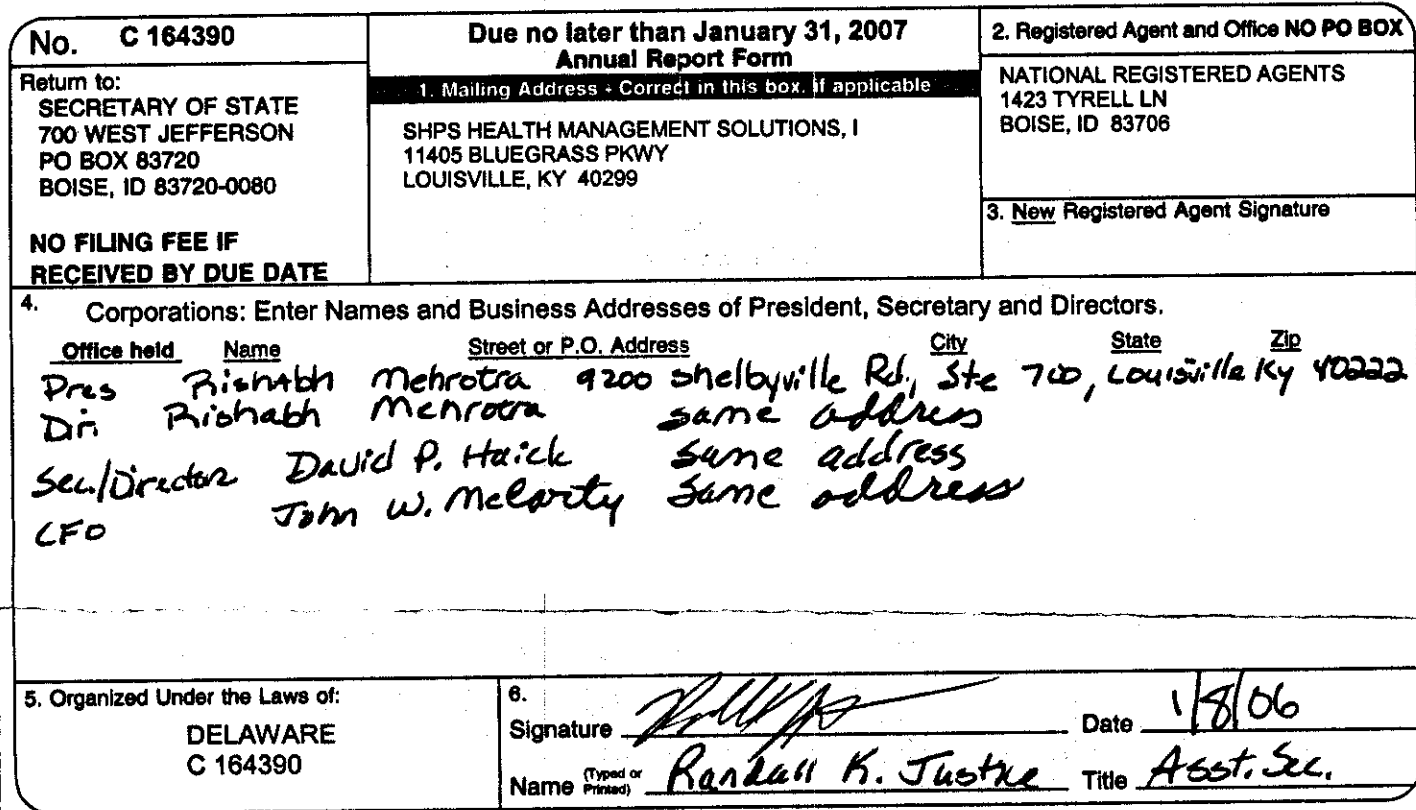 No. C 164390
Return to:
SECRETARY OF STATE
700 WEST JEFFERSON
PO BOX 83720
BOISE, ID 83720-0080
NO FILING FEE IF
RECEIVED BY DUE DATE
Due no later than January 31, 2007
Annual Report Form
1. Mailing Address - Correct in this box, if applicable
SHPS HEALTH MANAGEMENT SOLUTIONS, I
11405 BLUEGRASS PKWY
LOUISVILLE, KY 40299
2. Registered Agent and Office NO PO BOX
NATIONAL REGISTERED AGENTS
1423 TYRELL LN
BOISE, ID 83706
3. New Registered Agent Signature
4. Corporations: Enter Names and Business Addresses of President, Secretary and Directors.
Office held Name Street or P.O. Address City State Zip
Pres Rishabh Mehrotra 9200 Shelbyville Rd., Ste 700, Louisville Ky 40222
Dir. Rishabh Mehrotra same address
Sec./Director David P. Haick same address
CFO John W. McCarty same address
5. Organized Under the Laws of:
DELAWARE
C 164390
6.
Signature Date 1/8/06
Name (Typed or Printed) Randall K. Justice Title Asst. Sec.